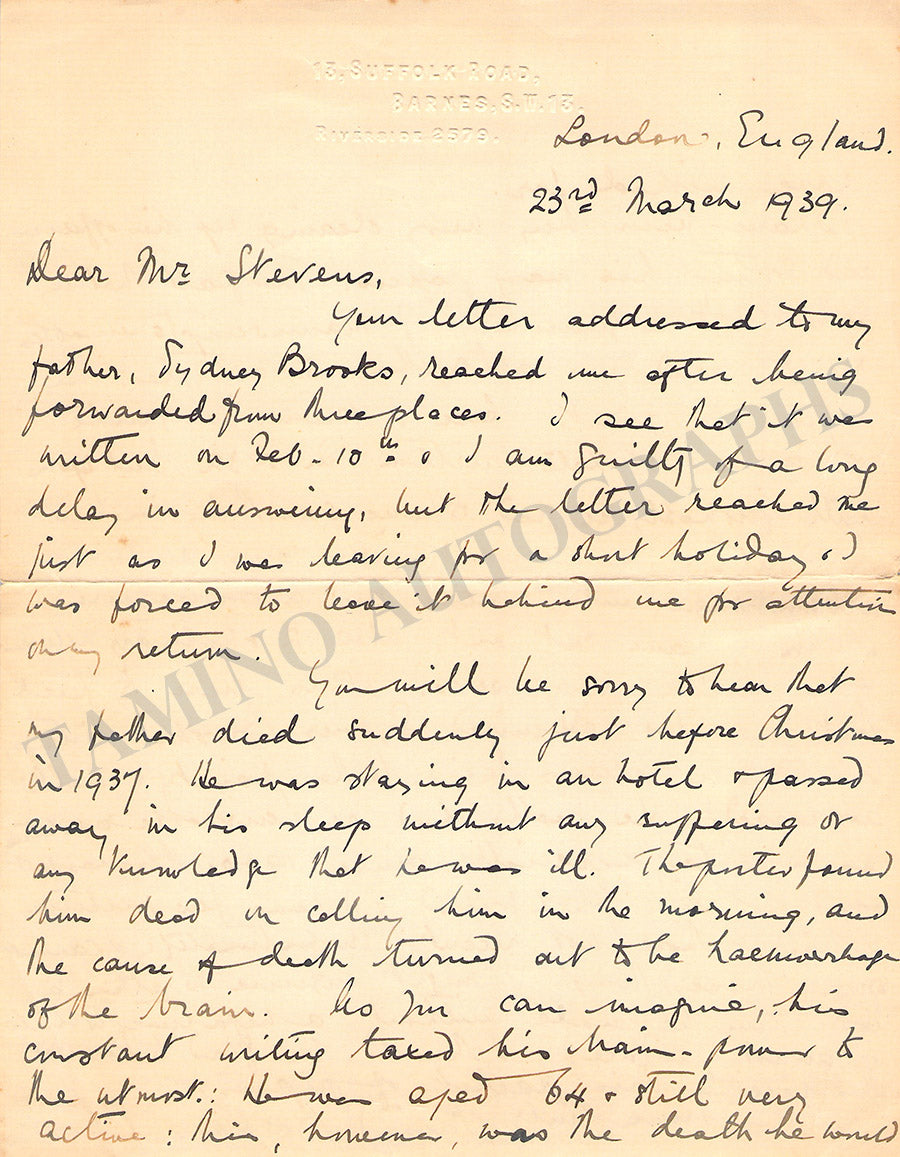 13, SUFFOLK ROAD,
BARNES, S.W.13.
RIVERSIDE 2579.
London, England.
23rd March 1939.
Dear Mr. Stevens,
Your letter addressed to my
father, Sydney Brooks, reached me after being
forwarded from three places. I see that it was
written on Feb. 10th & I am guilty of a long
delay in answering, but the letter reached me
just as I was leaving for a short holiday & I
was forced to leave it behind me for attention
on my return.
You will be sorry to hear that
my father died suddenly just before Christmas
in 1937. He was staying in an hotel & passed
away in his sleep without any suffering or
any knowledge that he was ill. The porter found
him dead on calling him in the morning, and
the cause of death turned out to be haemorrhage
of the brain. As you can imagine, his
constant writing taxed his brain-power to
the utmost: He was aged 64 & still very
active: this, however, was the death he would
TAMINO AUTOGRAPHS